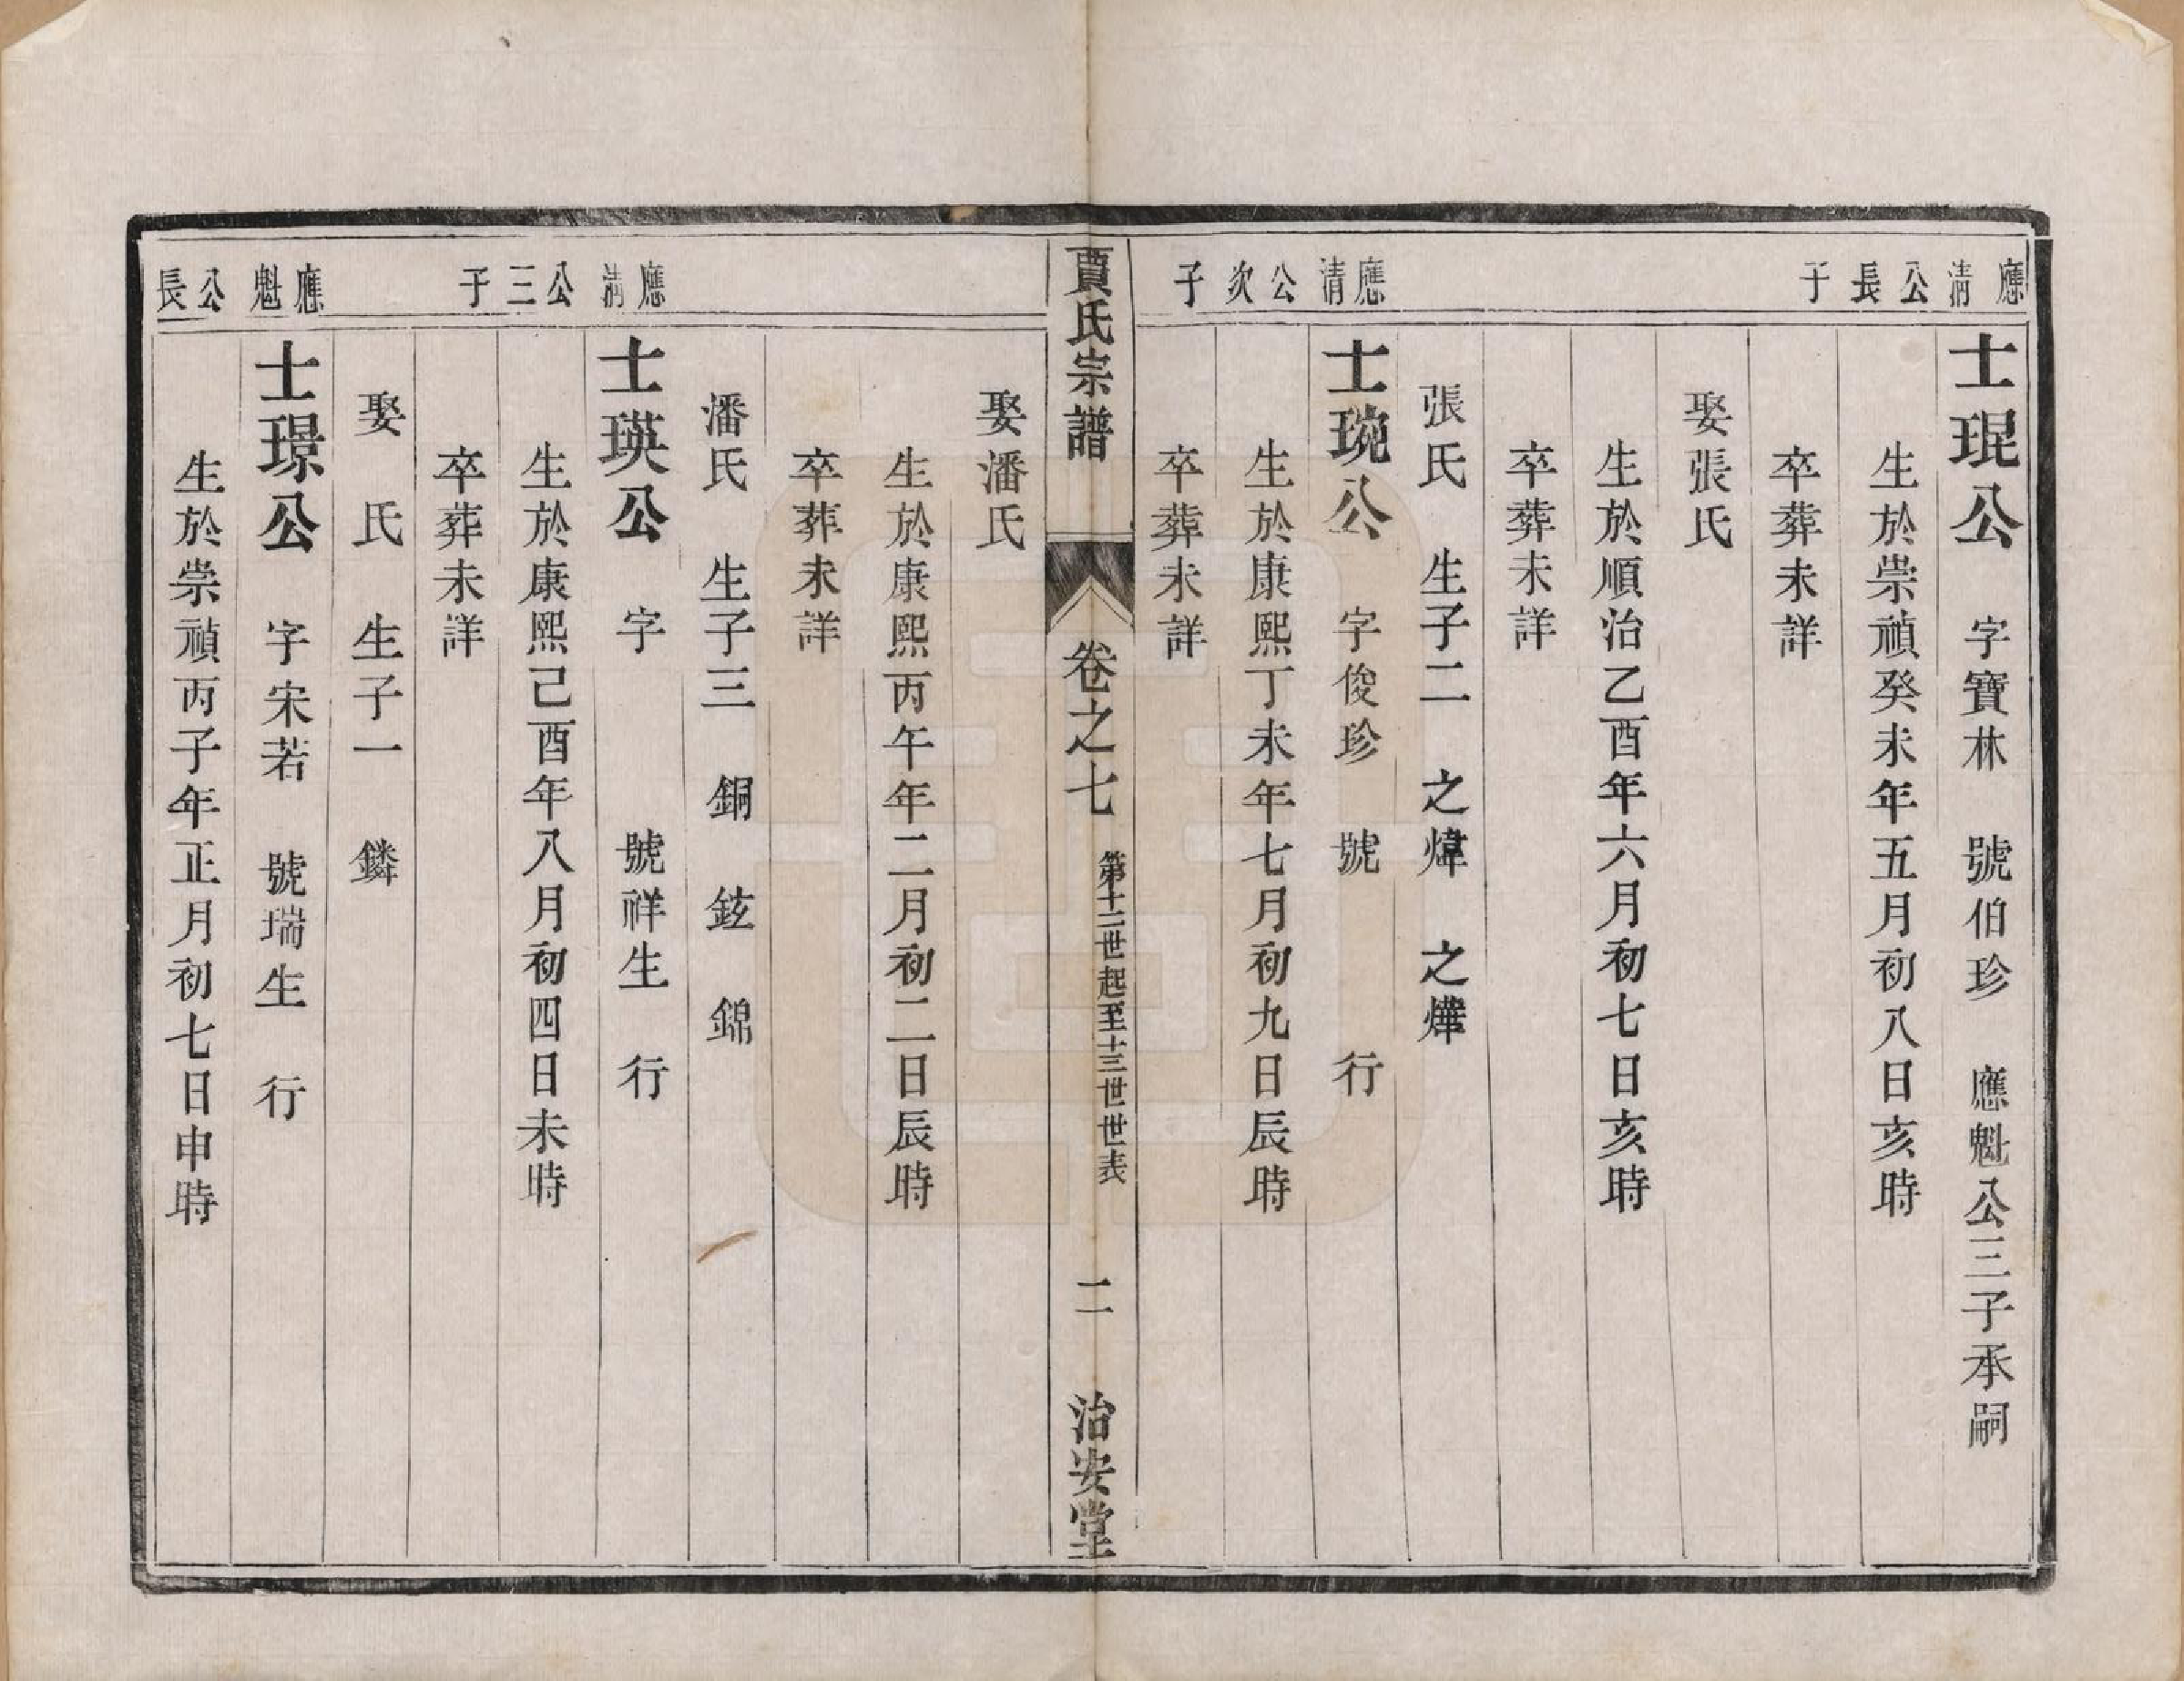 應清公長子
士琨公　字寶林　號伯珍　應魁公三子承嗣
生於崇禎癸未年五月初八日亥時
卒葬未詳
娶張氏
生於順治乙酉年六月初七日亥時
卒葬未詳
張氏　生子二　之煒　之燁
應清公次子
士琬公　字俊珍　號　行
生於康熙丁未年七月初九日辰時
卒葬未詳
賈氏宗譜　卷之七　第十二世起至十三世世表　二　治安堂
娶潘氏
生於康熙丙午年二月初二日辰時
卒葬未詳
潘氏　生子三　銅　鉉　錦
應清公三子
士瑛公　字　號祥生　行
生於康熙己酉年八月初四日未時
卒葬未詳
娶　氏　生子一　鏻
應魁公長
士璟公　字宋若　號瑞生　行
生於崇禎丙子年正月初七日申時